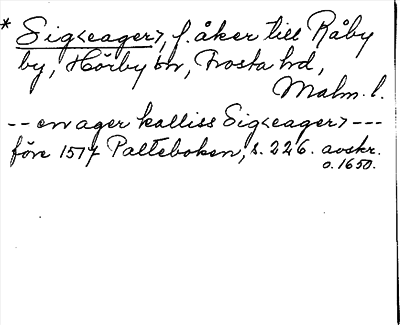 * Sig<eager>, f. åker till Råby
by, Hörby sn, Frosta hd,
Malm. l.
-- en ager kalliss Sig<eager> ---
före 1517 Palteboken, s. 226. avskr.
o. 1650.